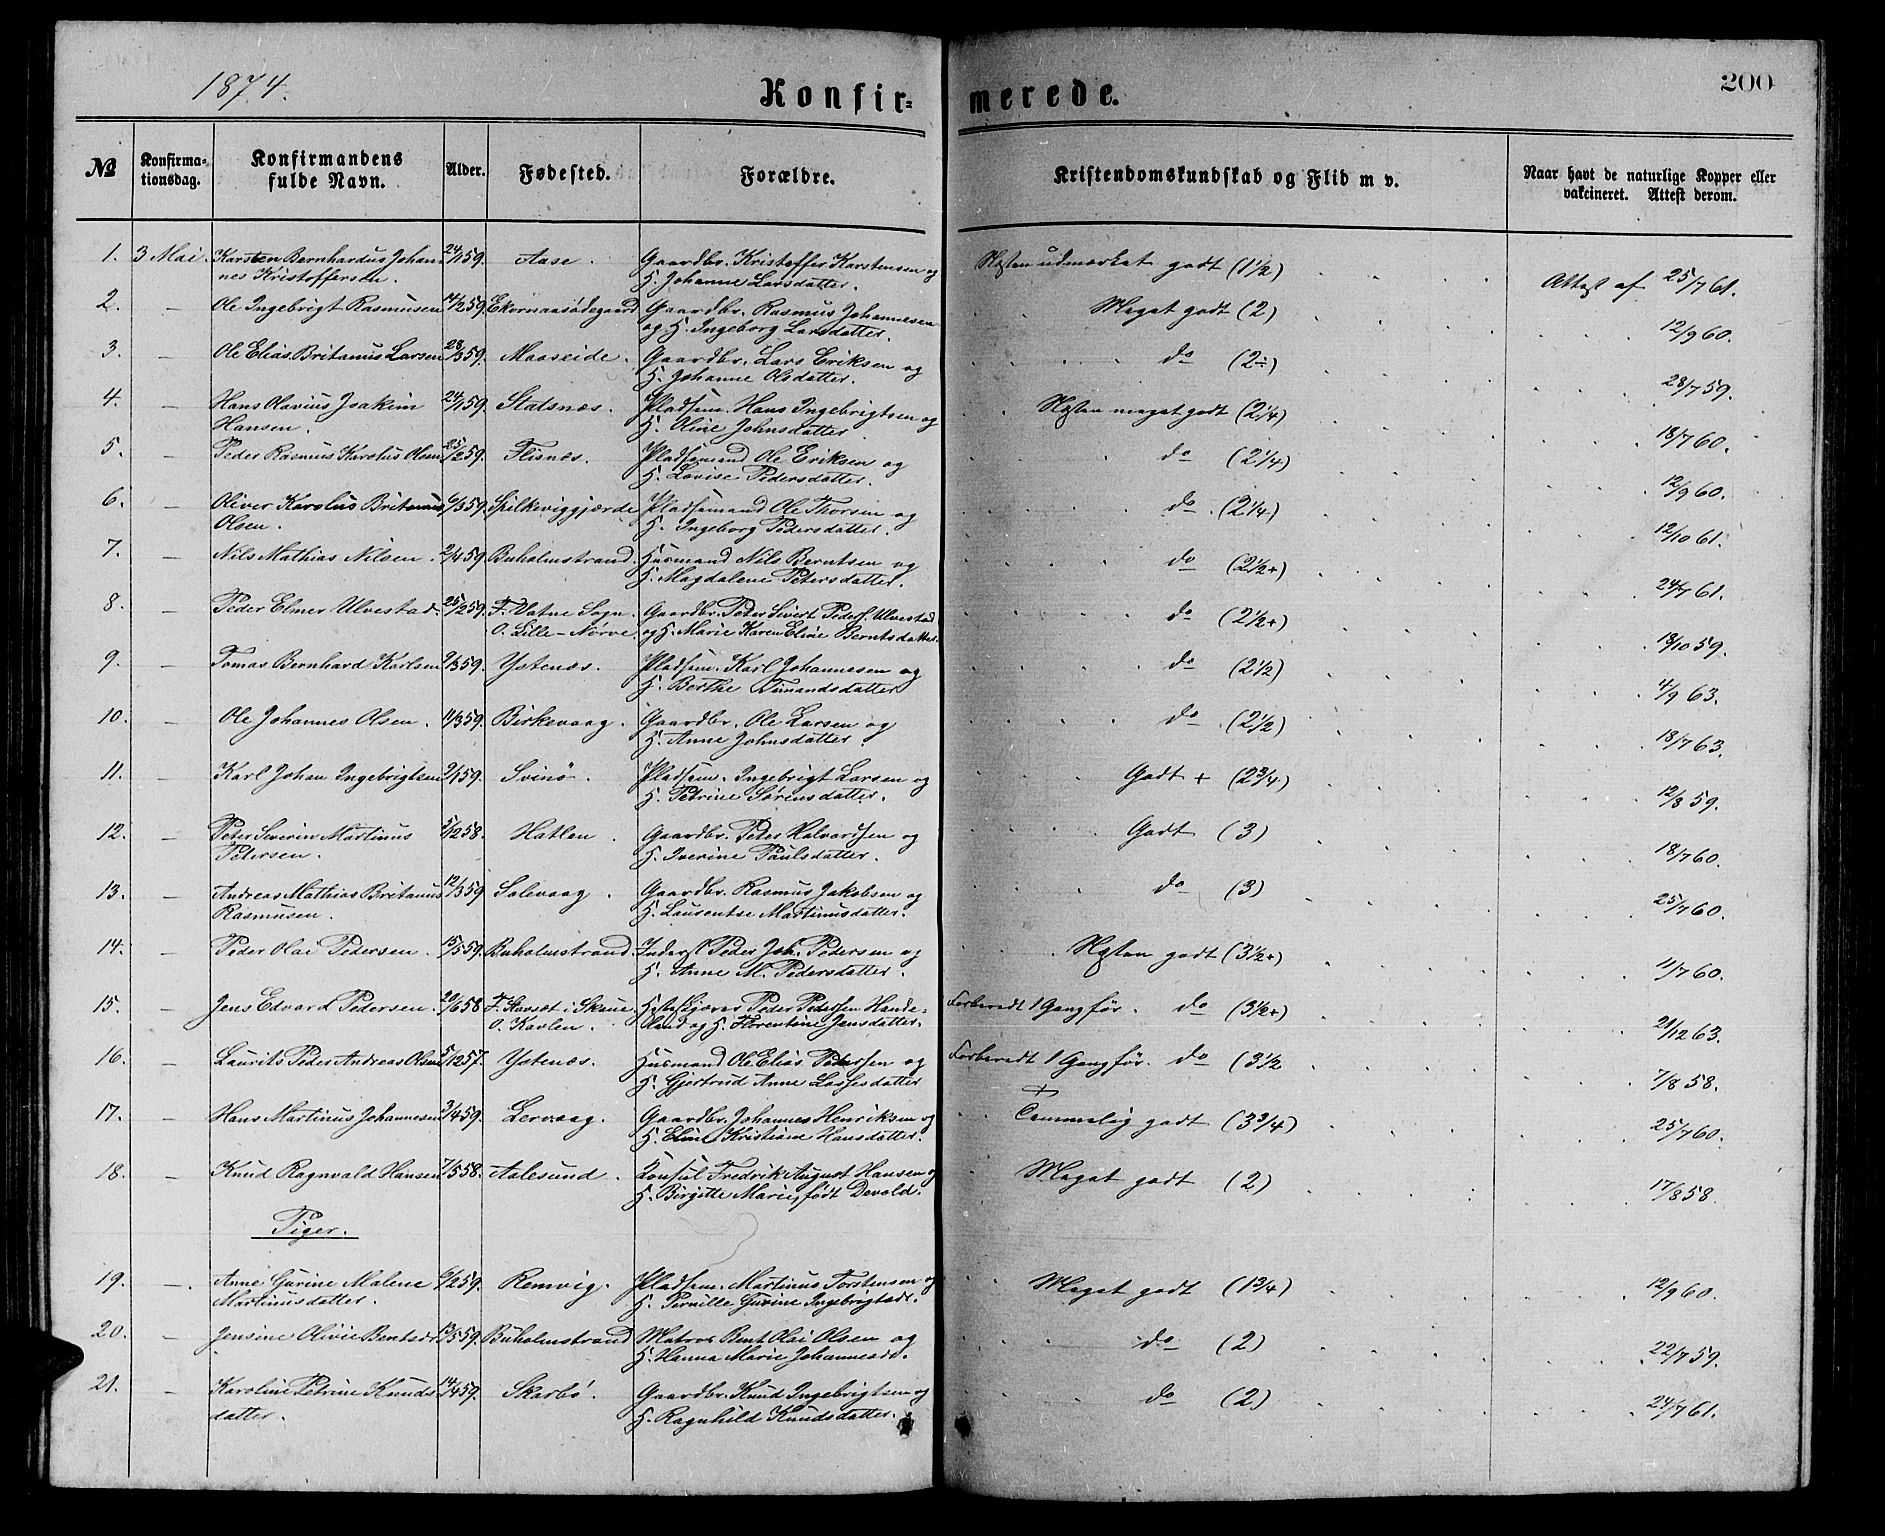 1874.
Konfir=
merede.
200
№
Konfirma-
tionsdag.
Konfirmandens
fulde Navn.
Alder.
Fødested.
Forældre.
Kristendomskundskab og Flid m v.
Naar havt de naturlige Kopper eller
vakcineret. Attest derom.
1. 3 Mai. Karsten Bernhardus Johan- 24/1 59. Aase. Gaardbr. Kristoffer Karstensen og Næsten udmærket godt (1 1/2)
nes Kristoffersen. H. Johanne Larsdatter. Attest af 25/7 61.
2. — Ole Ingebrigt Rasmusen 14/2 59. Ekornaasødegaard Gaardbr. Rasmus Johannesen Meget godt (2)
og H. Ingeborg Larsdatter. 12/9 60.
3. — Ole Elias Britanus Larsen 28/3 59. Maaseide. Gaardbr. Lars Eriksen og do (2÷)
H. Johanne Olsdatter. 28/7 59.
4. — Hans Olavius Joakim 24/1 59. Slatsnæs. Pladsem. Hans Ingebrigtsen og Næsten meget godt (2 1/4)
Hansen. H. Oline Johnsdatter 18/7 60.
5. — Peder Rasmus Karolus Olsen 25/2 59. Flisnæs. Pladsemand Ole Eriksen og do (2 1/4)
H. Lovise Pedersdatter. 12/9 60.
6. — Oliver Karolus Britanus 6/3 59. Spilkeviggjærde Pladsemand Ole Thorsen og do. (2 1/4)
Olsen. H. Ingeborg Pedersdatter. 12/10 61.
7. — Nils Mathias Nilsen. 2/4 59. Buholmstrand. Husmand Nils Berntsen og do (2 1/2+)
H. Magdalene Pedersdatter. 24/7 61.
8. — Peder Elmer Ulvestad. 25/2 59. F. Vatne Sogn. Gaardbr. Peter Sivert Peders. Ulvestad do (2 1/2+)
O. Lille-Nørve og H. Marie Karen Eline Berntsdatter. 18/10 59.
9. — Tomas Bernhard Karlsen 9/3 59. Ystenæs. Pladsem. Karl Johannesen og do (2 1/2)
H. Berthe Timandsdatter 4/9 63.
10. — Ole Johannes Olsen. 11/3 59. Birkevaag. Gaardbr. Ole Larsen og do (2 1/2)
H. Anne Johnsdatter. 18/7 63.
11. — Karl Johan Ingebrigtsen 9/1 59. Svinø. Pladsem. Ingebrigt Larsen og Godt + (2 3/4)
H. Petrine Sørensdatter. 12/8 59.
12. — Peter Severin Martinus 5/12 58. Hatlen. Gaardbr. Peder Halvardsen og Godt (3)
Petersen. H. Iverine Paulsdatter. 18/7 60.
13. — Andreas Mathias Britanus 12/3 59 Solevaag. Gaardbr. Rasmus Jakobsen og do (3)
Rasmusen. H. Laurentse Martinusdatter. 25/7 60.
14. — Peder Olai Pedersen. 15/5 59. Buholmstrand. Inderst Peder Joh. Pedersen og Næsten godt (3 1/2+)
H. Anne M. Pedersdatter. 11/7 60.
15. — Jens Edvard Pedersen. 20/6 58 Peder Pedersen Hande- Forberedt 1 Gang før. do (3 1/2+)
O. Kavlen. land og H. Florentine Jensdatter. 21/12 63.
16. — Laurits Peder Andreas Olsen 5/12 57. Ystenæs. Husmand Ole Elias Petersen og Forberedt 1 Gang før. do (3 1/2
H. Gjertrud Anne Lassesdatter 7/8 58.
17. — Hans Martinus Johannesen 3/4 59. Lervaag. Gaardbr. Johannes Henriksen og Temmelig godt (3 3/4)
H. Eline Kristiane Hansdatter. 25/7 60.
18. — Knud Ragnvald Hansen 7/5 58. Aalesund. Konsul Fredrik August Hansen og Meget godt (2)
H. Birgitte Marie, født Devold. 17/8 58.
Piger.
19. — Anne Gurine Malene 6/2 59. Remvig. Pladsem. Martinus Torstensen og Meget godt (1 3/4)
Martinusdatter. H. Pernille Gurine Ingebrigtsdt. 12/9 60.
20. — Jensine Olivie Bentsdr 13/5 59. Buholmstrand Matros Bent Olai Olsen og do (2)
H. Hanna Marie Johannesdr. 22/7 59.
21. — Karoline Petrine Knuds 14/4 59. Skarbø. Gaardbr. Knud Ingebrigtsen og do (2)
datter. H. Ragnhild Knudsdatter. 24/7 61.